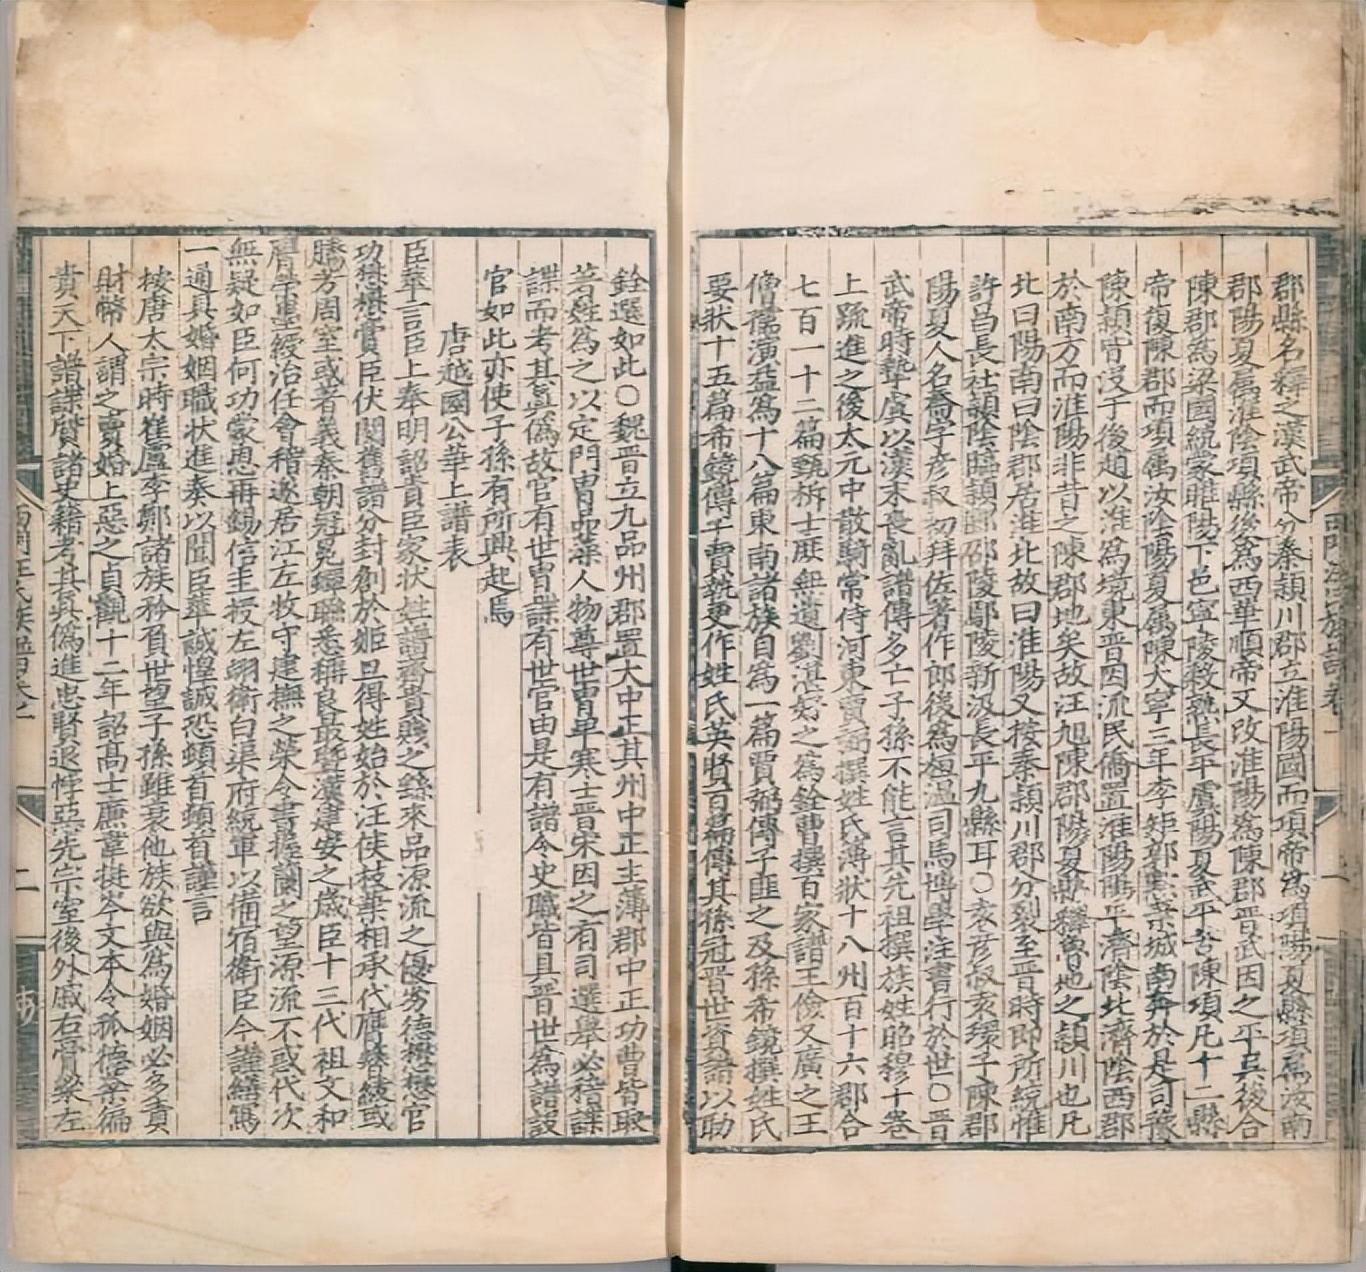 郡縣名釋之漢武帝分秦潁川郡立淮陽國而項帝爲項陽夏縣項爲汝南
郡陽夏属淮陰項縣後爲西華順帝又改淮陽爲陳郡晋武因之平呉後合
陳郡爲梁國統蒙睢陽下邑寧陵穀熟長平慮陽夏武平苦陳項凡十二縣
帝復陳郡而項属汝陰陽夏属陳大寧三年李矩郭黙棄城南奔於是司豫
陳潁皆没于後趙以淮爲境東晋因流民僑置淮陽陽平濟陰北濟陰西郡
於南方而淮陽非昔之陳郡地矣故汪旭陳郡陽夏縣釋魯地之潁川也凡
北曰陽南曰陰郡居淮北故曰淮陽又按秦潁川郡分裂至晋時即所統惟
許昌長社潁陰臨潁郾邵陵鄢陵新汲長平九縣耳○袁彦叔袁瓌子陳郡
陽夏人名喬字彦叔初拜佐著作郎後爲桓温司馬博學注書行於世○晋
武帝時摯虞以漢末喪亂譜傳多亡子孫不能言其先祖撰族姓昭穆十卷
上䟽進之後太元中散騎常侍河東賈弼撰姓氏簿狀十八州百十六郡合
七百一十二篇甄析士庶無遺劉湛好之爲銓曹撰百家譜王儉又廣之王
僧孺演益爲十八篇東南諸族自爲一篇賈弼傳子匪之及孫希鏡撰姓氏
要狀十五篇希鏡傳子賈執更作姓氏英賢百篇傳其孫冠晋世資譜以助
銓選如此○魏晋立九品州郡置大中正其州中正主薄郡中正功曹皆取
著姓爲之以定門胄品藻人物尊世胄卑寒士晋宋因之有司選舉必稽譜
諜而考其眞僞故官有世胄諜有世官由是有譜令史職皆具晋世爲譜設
官如此亦使子孫有所興起焉
唐越國公華上譜表
臣華言臣上奉明詔責臣家状姓譜齋貴賤之繇來品源流之優劣德懋懋官
功懋懋賞臣伏閱舊譜分封創於姬旦得姓始於汪侯枝葉相承代膺簪紱或
騰芳周室或著義秦朝冠冕蟬聯悉稱良最曁漢建安之歳臣十三代祖文和
膺學墨綬治任會稽遂居江左牧守建撫之榮令書握蘭之望源流不惑代次
無疑如臣何功蒙恩再錫信圭授左翊衛白渠府統軍以備宿衛臣今謹繕寫
一通具婚姻職状進奏以聞臣華誠惶誠恐頓首頓首謹言
按唐太宗時崔盧李鄭諸族矜負世望子孫雖衰他族欲與爲婚姻必多責
財幣人謂之賣婚上惡之貞觀十二年詔髙士廉韋挺岑文本令狐德棻徧
責天下譜諜質諸史籍考其真僞進忠賢退悖惡先宗室後外戚右膏粱左